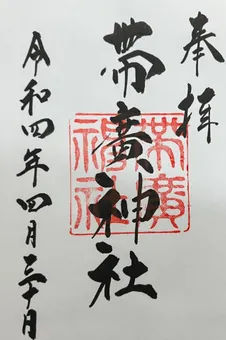 奉拝
帶廣神社
帶廣
神社
令和四年四月三十日